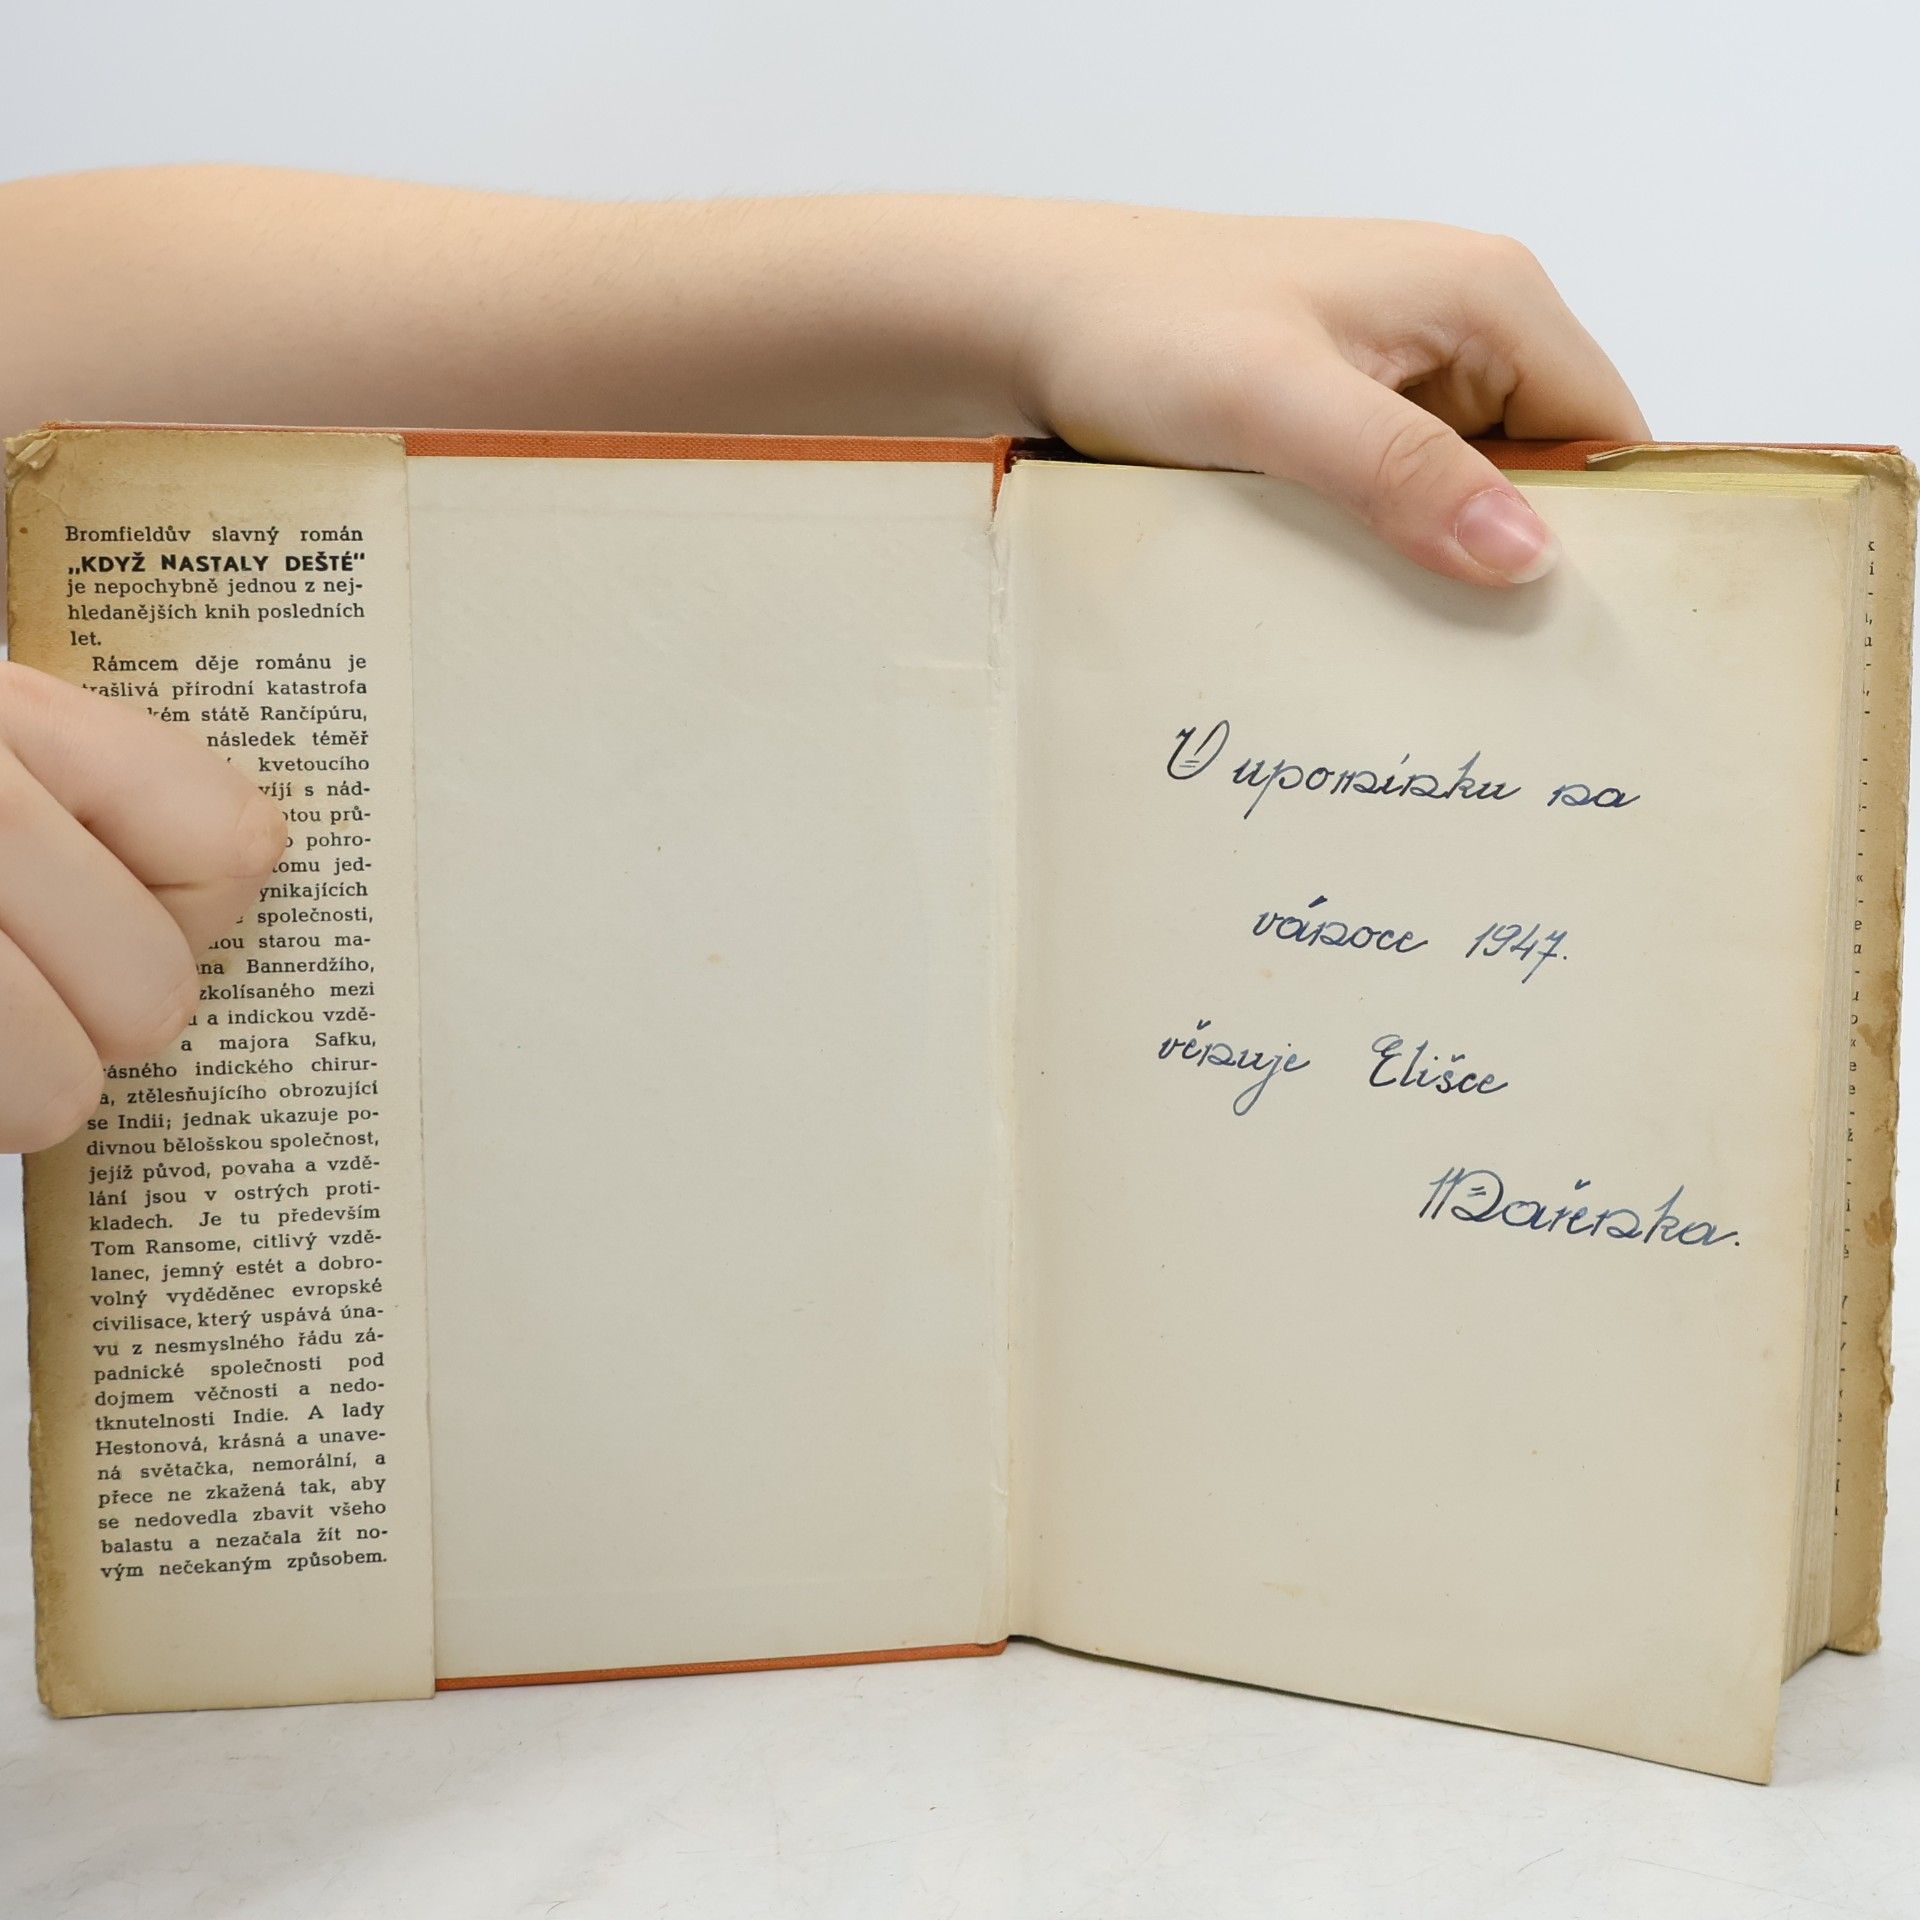 Bromfieldův slavný román
„KDYŽ NASTALY DEŠTĚ“
je nepochybně jednou z nej-
hledanějších knih posledních
let.
Rámcem děje románu je
trašlivá přírodní katastrofa
kém státě Rančípúru,
následek téměř
kvetoucího
víjí s nád-
otou prů-
pohro-
tomu jed-
ynikajících
společnosti,
nou starou ma-
na Bannerdžího,
zkolísaného mezi
a indickou vzdě-
a majora Safku,
rásného indického chirur-
a, ztělesňujícího obrozující
se Indii; jednak ukazuje po-
divnou bělošskou společnost,
jejíž původ, povaha a vzdě-
lání jsou v ostrých proti-
kladech. Je tu především
Tom Ransome, citlivý vzdě-
lanec, jemný estét a dobro-
volný vyděděnec evropské
civilisace, který uspává úna-
vu z nesmyslného řádu zá-
padnické společnosti pod
dojmem věčnosti a nedo-
tknutelnosti Indie. A lady
Hestonová, krásná a unave-
ná světačka, nemorální, a
přece ne zkažená tak, aby
se nedovedla zbavit všeho
balastu a nezačala žít no-
vým nečekaným způsobem.
V upomínku na
vánoce 1947.
věnuje Elišce
Mařenka.